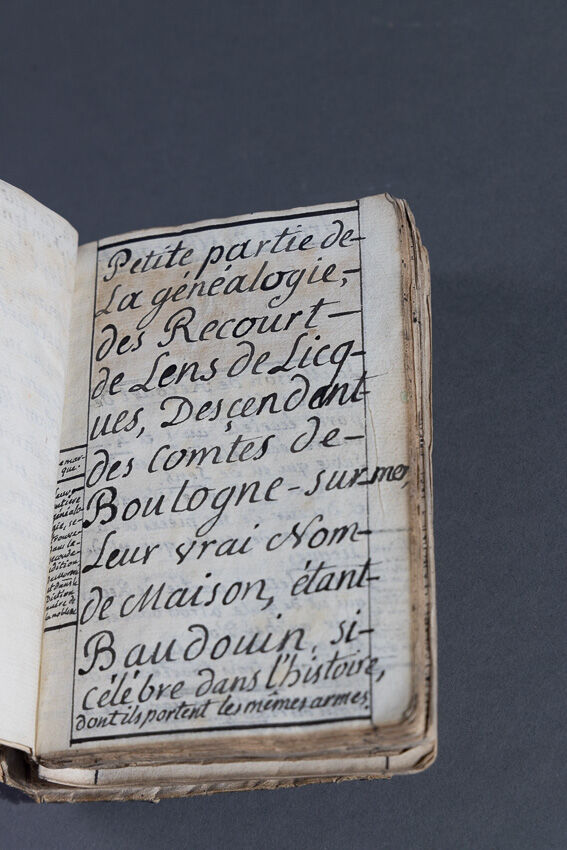 Petite partie de-
La généalogie,-
des Recourt-
de Lens de Licq-
ues, Desçendant
des comtes de-
Boulogne-sur mer,
Leur vrai Nom-
de Maison, étant-
Baudouin, si-
célébre dans l'histoire,
dont ils portent les mêmes armes.